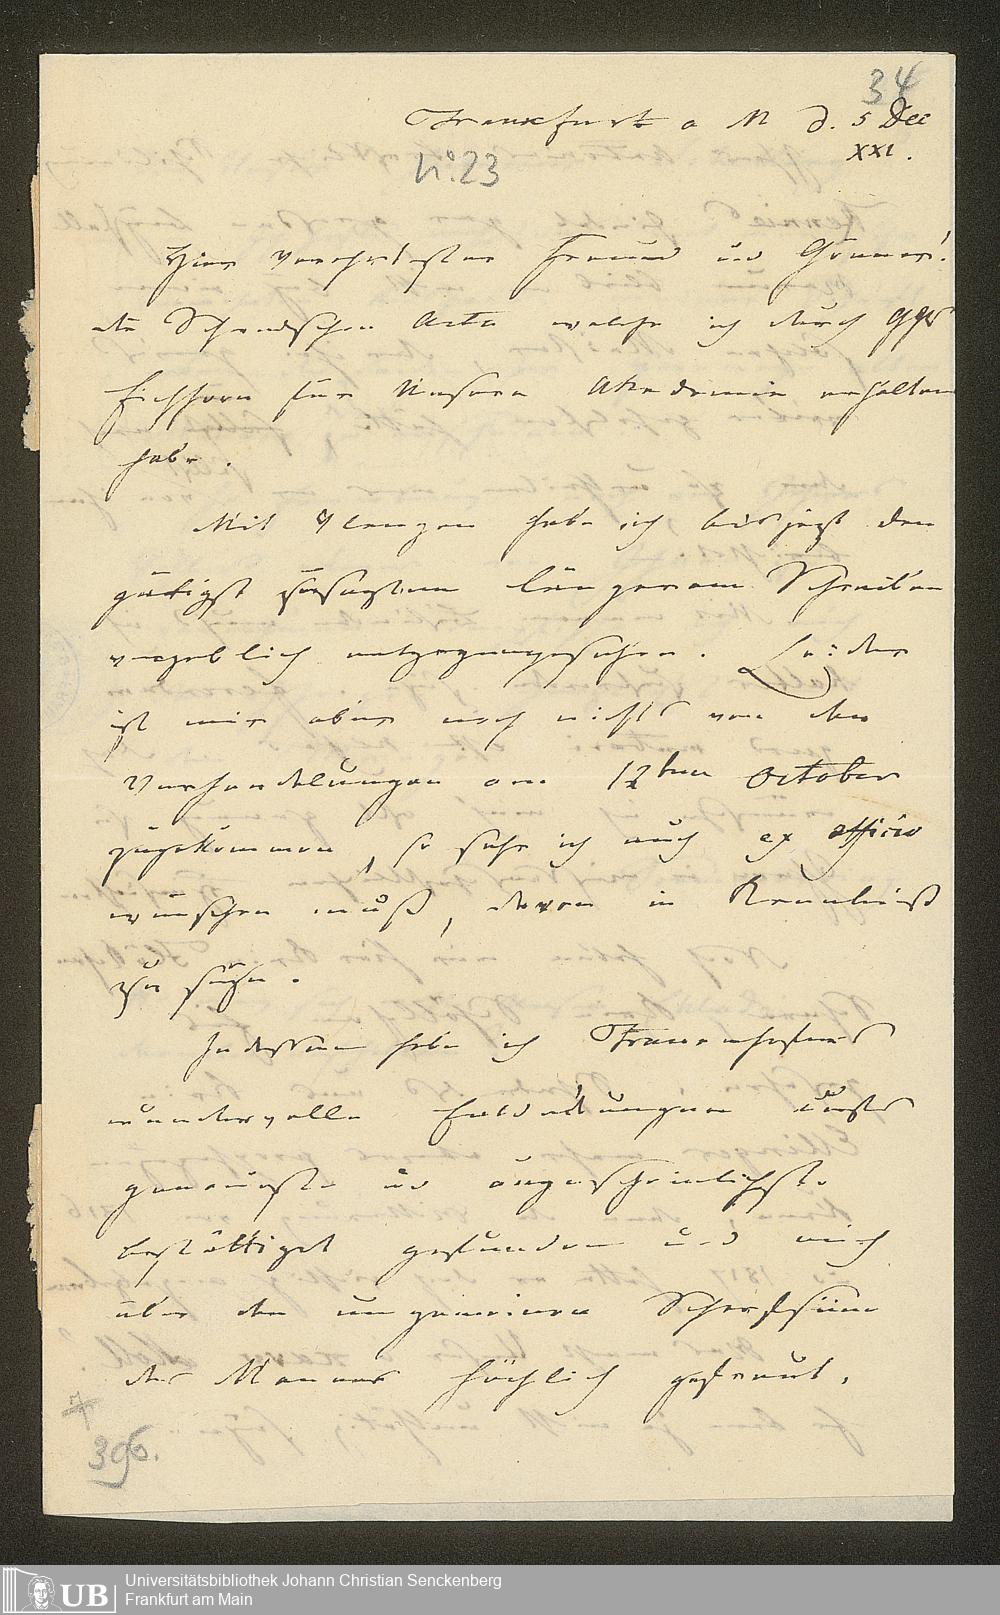 34
Frankfurt a M d. 5 Dec
XXI.
No. 23
Hier verehrtester Freund und Gönner!
die Schwedischen Acta welche ich durch
Eichhorn für Unsere Akademie erhalten
habe.
Mit Verlangen habe ich bis jezt dem
gütigst zugesagten längerem Schreiben
vergeblich entgegengesehen. Leider
ist mir aber noch nichts von den
Verhandlungen am 12ten October
zugekommen, so sehr ich auch ex officio
wünschen muß, davon in Kenntniß
zu seyn.
Indessen habe ich Frauenhofers
wundervolle Entdeckungen aufs
genaueste und augenscheinlichste
bestättiget gefunden und mich
über den ungemeinen Scharfsinn
des Mannes höchlich gefreut.
7
396.
UB
Universitätsbibliothek Johann Christian Senckenberg
Frankfurt am Main